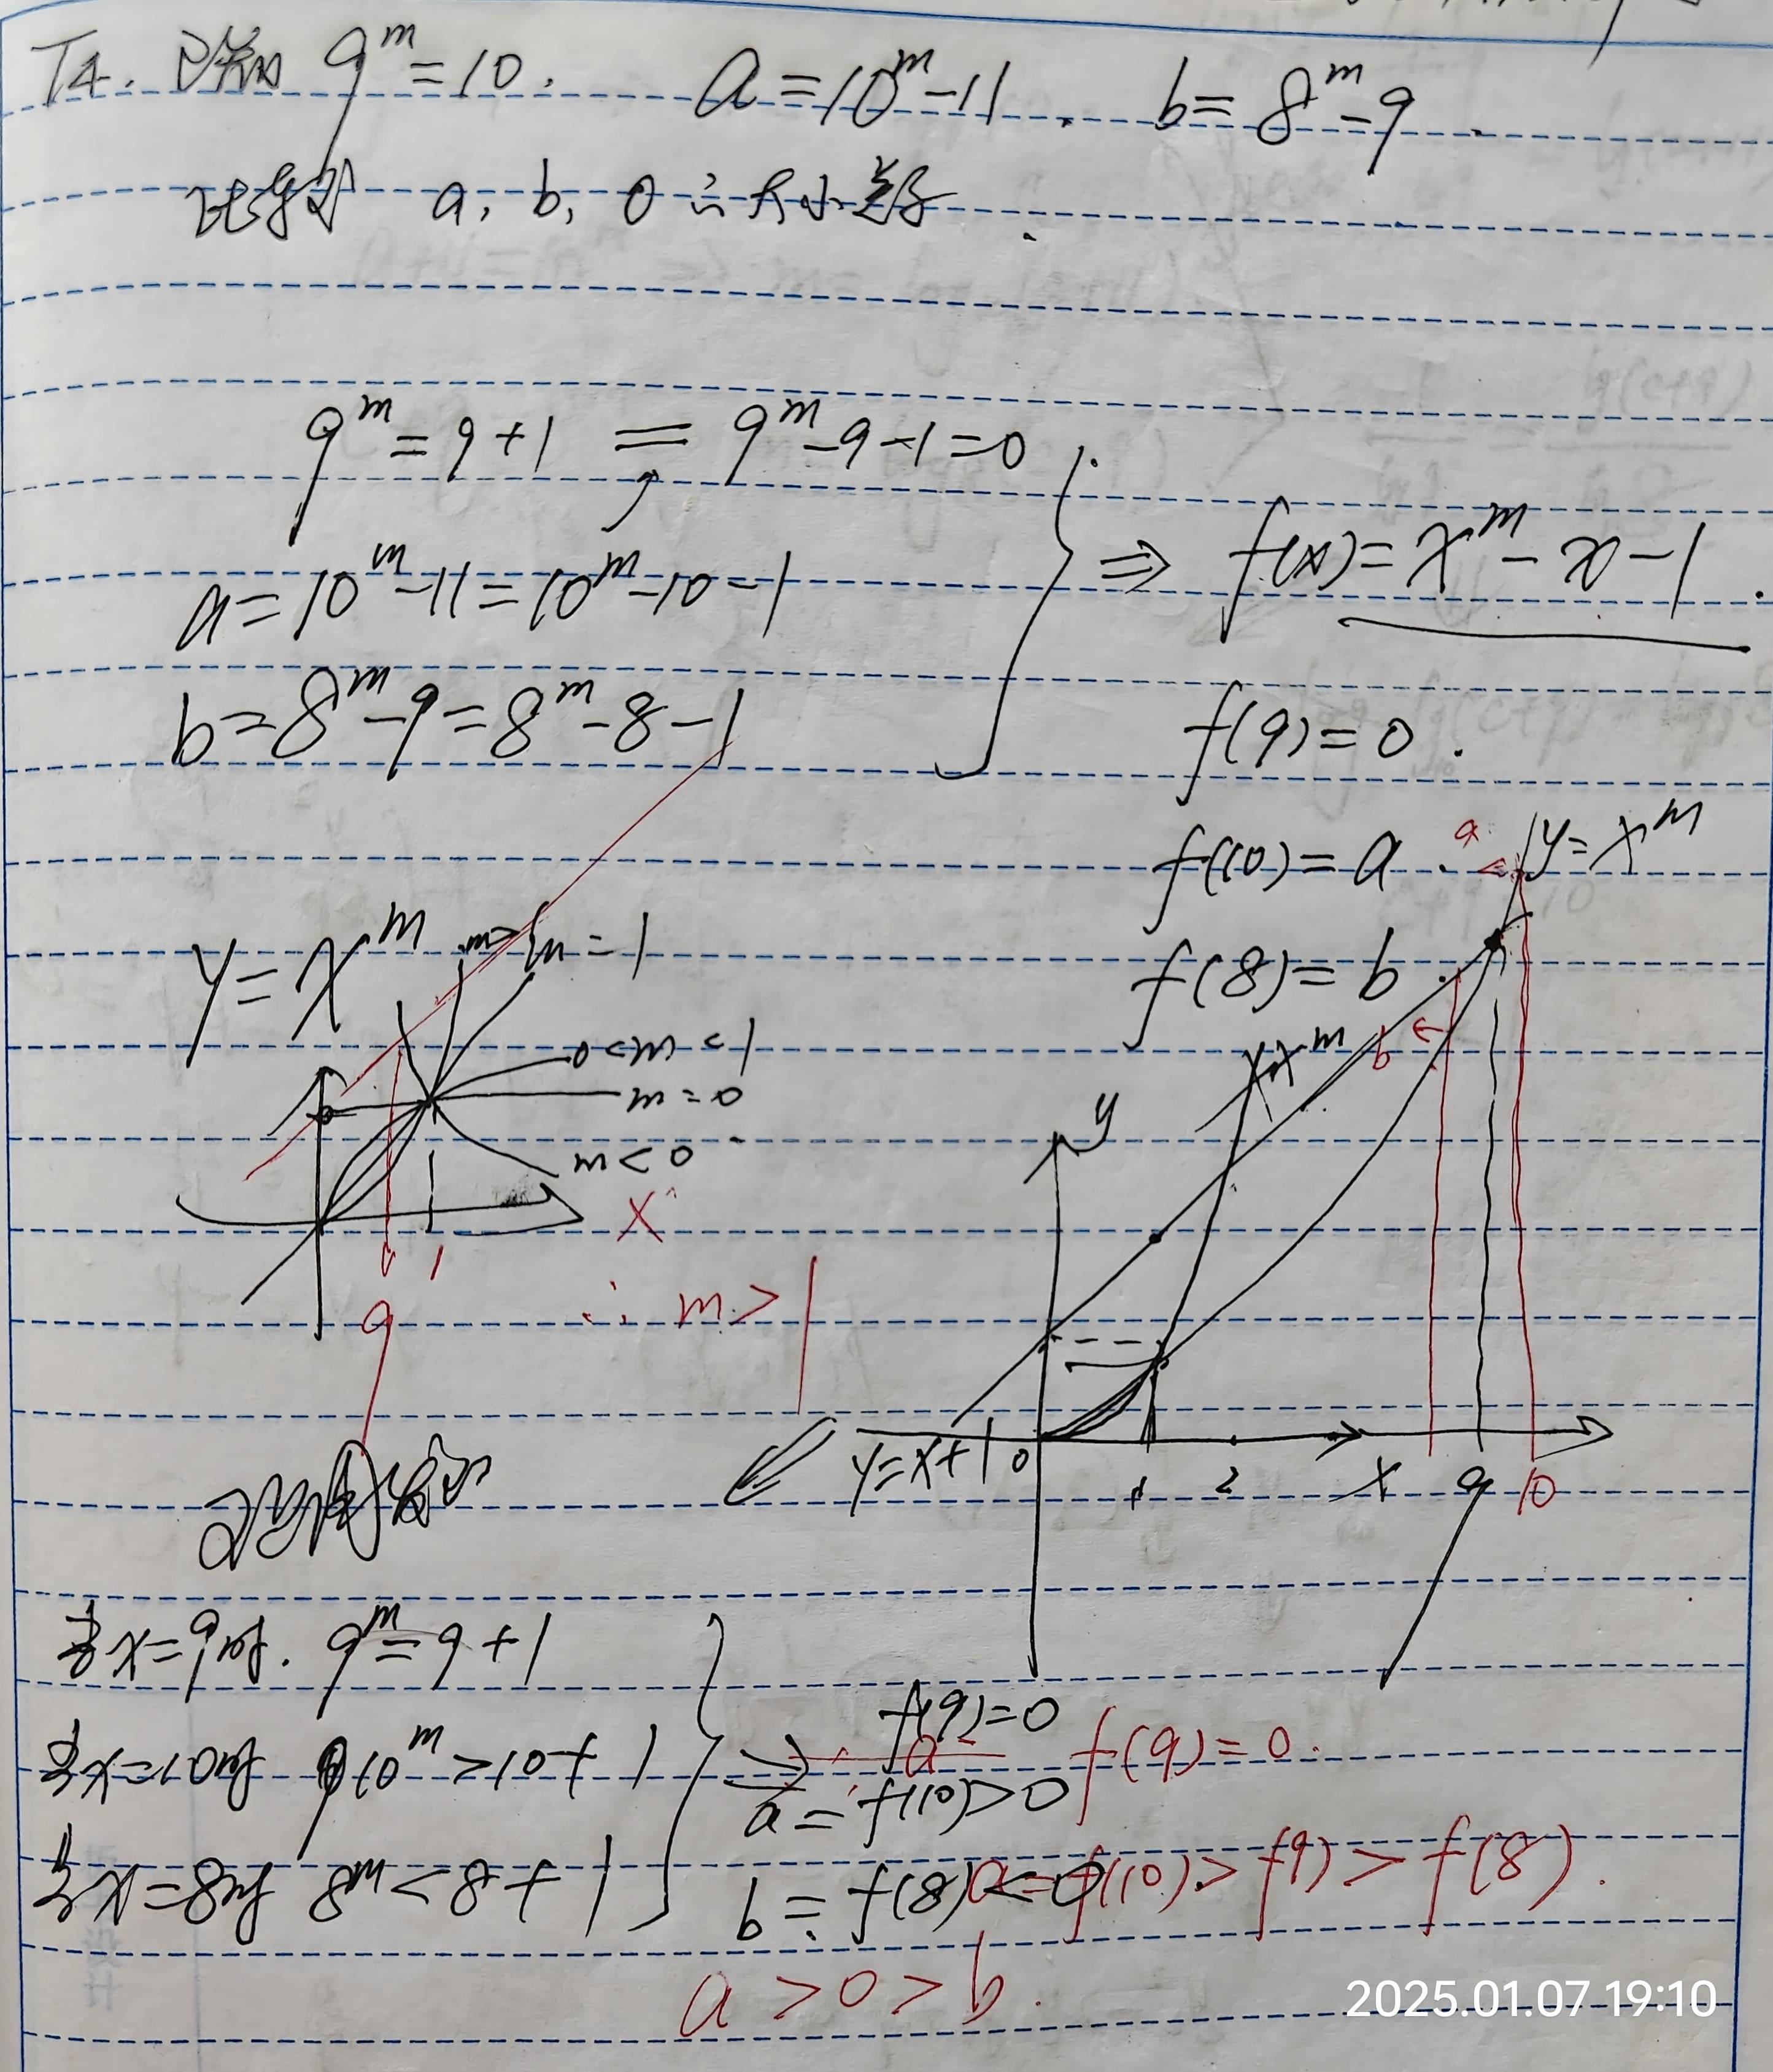 T4. 已知 9^m = 10. a = 10^m - 11. b = 8^m - 9.
比较 a, b, 0 的大小关系.
9^m = 9 + 1 = 9^m - 9 - 1 = 0.
a = 10^m - 11 = 10^m - 10 - 1
b = 8^m - 9 = 8^m - 8 - 1
⇒ f(x) = x^m - x - 1.
f(9) = 0.
f(10) = a.
f(8) = b.
y = x^m
m > 1
m = 1
0 < m < 1
m = 0
m < 0
x
1
9
∴ m > 1
a
y = x^m
b
x^m
y
y = x + 1
0
1
2
x
9
10
当x=9时. 9^m = 9 + 1
当x=10时 10^m > 10 + 1
当x=8时 8^m < 8 + 1
⇒ f(9) = 0
a = f(10) > 0
b = f(8) < 0
f(9) = 0.
a = f(10) > f(9) > f(8).
a > 0 > b.
2025.01.07 19:10